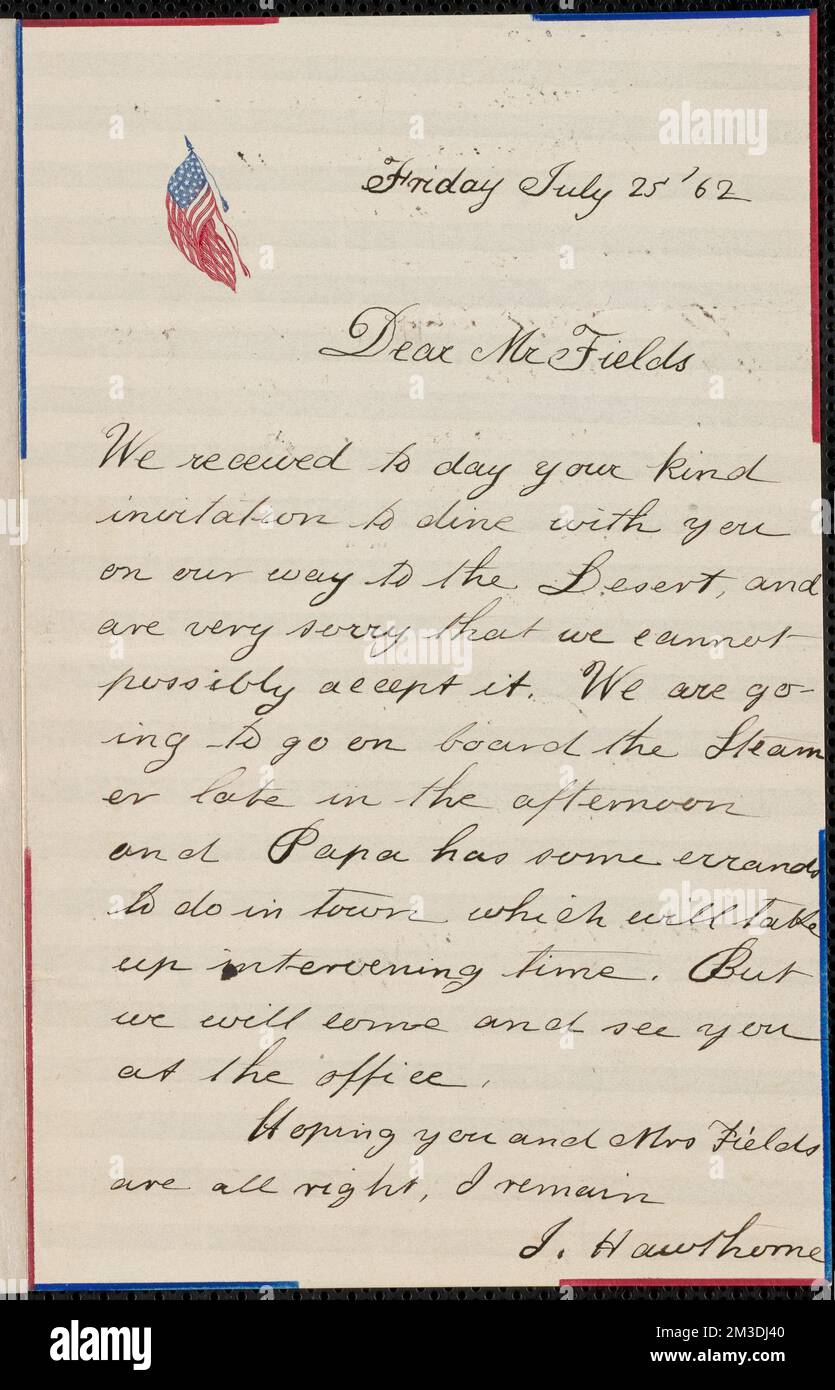 Friday July 25 '62
Dear Mr Fields
We received to day your kind
invitation to dine with you
on our way to the Desert, and
are very sorry that we cannot
possibly accept it. We are go-
ing to go on board the Steam
er late in the afternoon
and Papa has some errands
to do in town which will take
up intervening time. But
we will come and see you
at the office.
Hoping you and Mrs Fields
are all right, I remain
J. Hawthorne
alamy
alamy
Image ID: 2M3DJ40
www.alamy.com